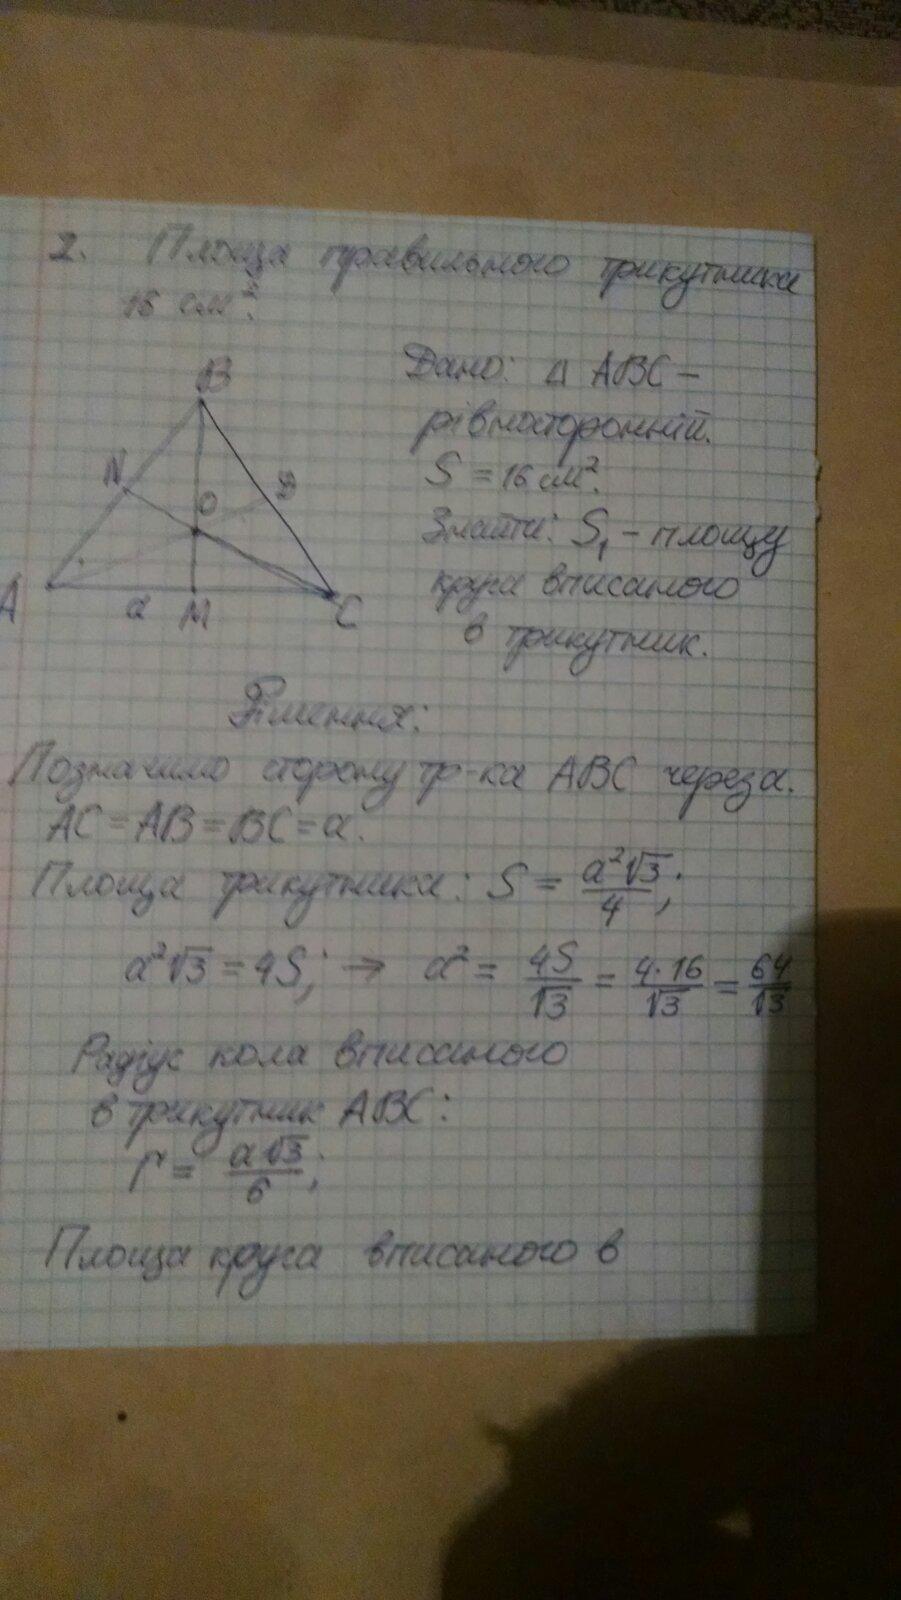 2. Площа правильного трикутника
16 см².
B
N
O
D
A
a
M
C
Дано: Δ ABC –
рівносторонній.
S = 16 см².
Знайти: S₁ – площу
круга вписаного
в трикутник.
Рішення:
Позначимо сторону тр-ка ABC через a.
AC = AB = BC = a.
Площа трикутника: S = a²√3/4;
a²√3 = 4S; → a² = 4S/√3 = 4·16/√3 = 64/√3
Радіус кола вписаного
в трикутник ABC:
r = a√3/6;
Площа круга вписаного в